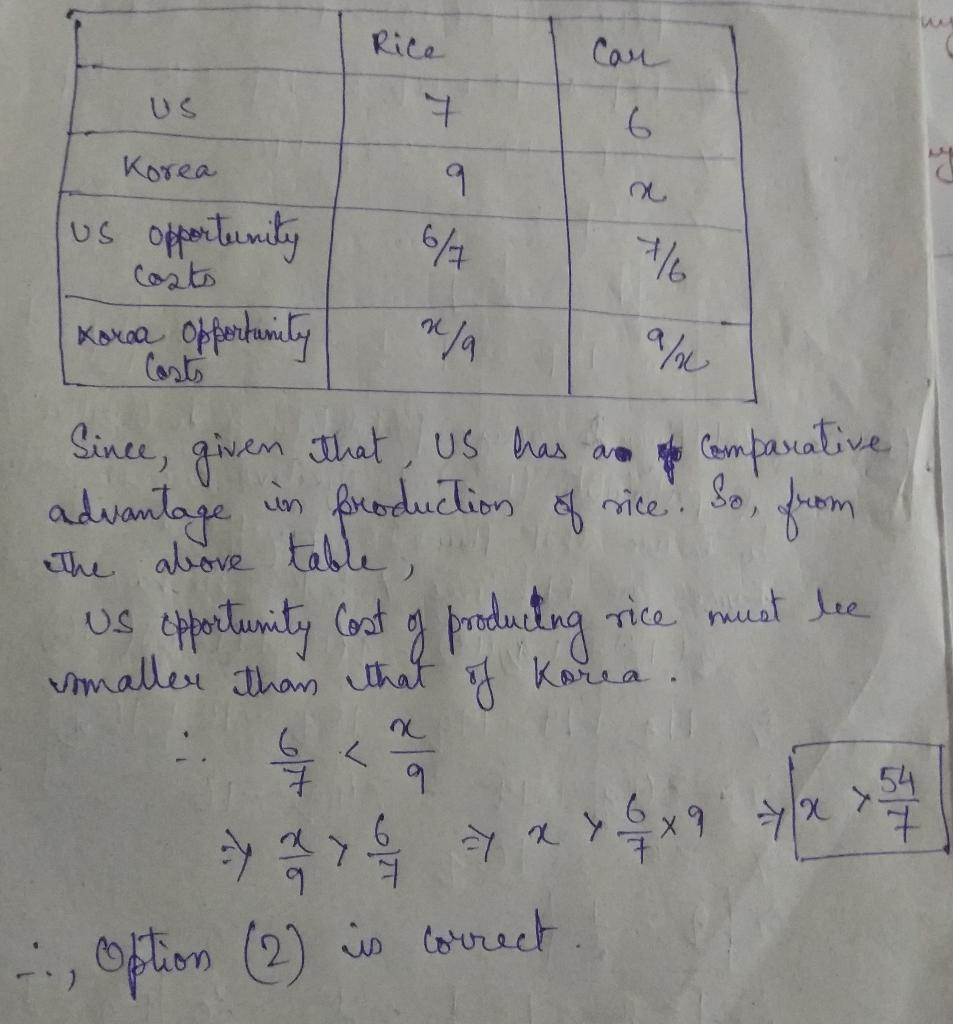 Rice Car
US 7 6
Korea 9 x
US Opportunity 6/7 7/6
Costs
Korea Opportunity x/9 9/x
Costs
Since, given that, US has a comparative
advantage in production of rice. So, from
the above table,
US opportunity Cost of producing rice must be
smaller than that of Korea.
∴ 6/7 < x/9
⇒ x/9 > 6/7 ⇒ x > 6/7 × 9 ⇒ x > 54/7
∴, Option (2) is correct.